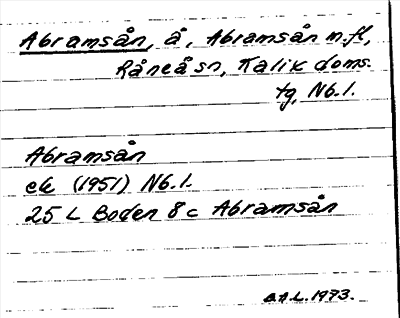 Abramsån, å, Abramsån m.fl,
Råneå sn, Kalix doms.
tg, Nb.l.
Abramsån
ek (1951) Nb.l.
25 L Boden 8 c Abramsån
B.A.L. 1973.